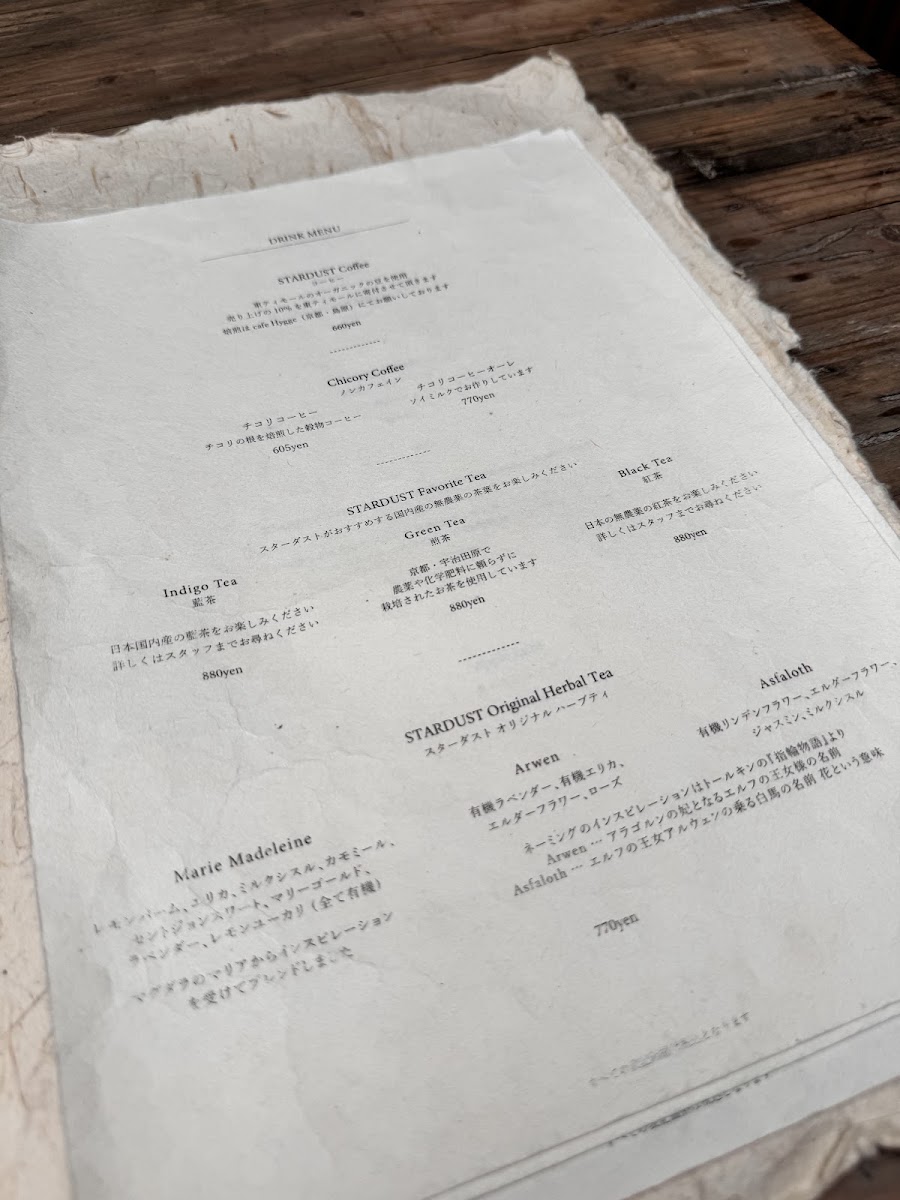 DRINK MENU
STARDUST Coffee
コーヒー
東ティモールのオーガニックの豆を使用
売り上げの10%を東ティモールに寄付させて頂きます
焙煎は cafe Hygge（京都・島原）にてお願いしております
660yen
Chicory Coffee
ノンカフェイン
チコリコーヒー
チコリの根を焙煎した穀物コーヒー
605yen
チコリコーヒーオーレ
ソイミルクでお作りしています
770yen
STARDUST Favorite Tea
スターダストがおすすめする国内産の無農薬の茶葉をお楽しみください
Indigo Tea
藍茶
日本国内産の藍茶をお楽しみください
詳しくはスタッフまでお尋ねください
880yen
Green Tea
煎茶
京都・宇治田原で
農薬や化学肥料に頼らずに
栽培されたお茶を使用しています
880yen
Black Tea
紅茶
日本の無農薬の紅茶をお楽しみください
詳しくはスタッフまでお尋ねください
880yen
STARDUST Original Herbal Tea
スターダスト オリジナル ハーブティ
Marie Madeleine
レモンバーム、エリカ、ミルクシスル、カモミール、
セントジョンズワート、マリーゴールド、
ラベンダー、レモンユーカリ（全て有機）
マグダラのマリアからインスピレーション
を受けてブレンドしました
Arwen
有機ラベンダー、有機エリカ、
エルダーフラワー、ローズ
Asfaloth
有機リンデンフラワー、エルダーフラワー、
ジャスミン、ミルクシスル
ネーミングのインスピレーションはトールキンの『指輪物語』より
Arwen … アラゴルンの妃となるエルフの王女様の名前
Asfaloth … エルフの王女アルウェンの乗る白馬の名前 花という意味
770yen
となります